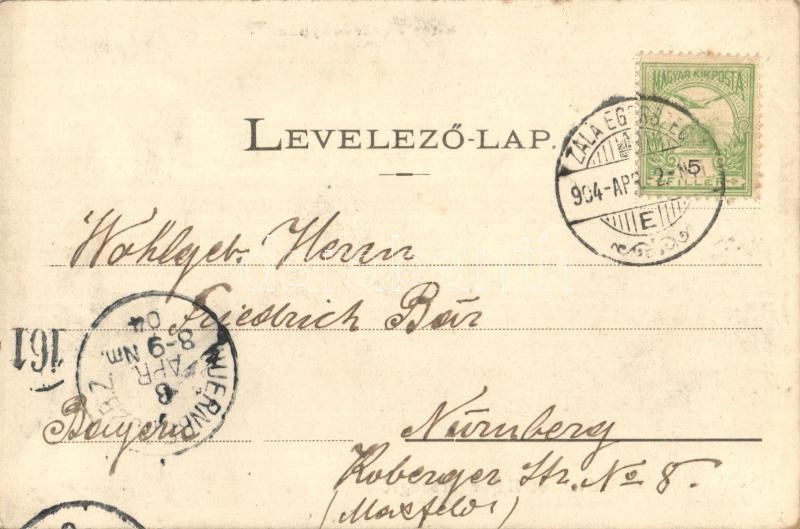 LEVELEZŐ-LAP.
MAGYAR KIR. POSTA
5
ZALA EGERSZEG
904-APR
E
Wohlgeb. Herrn
Friedrich Bär
darabanth
161
NUERNB
8-9 Nm.
APR
04
Bayern
Nürnberg
Koberger Str. No 8.
(Maxfeld)